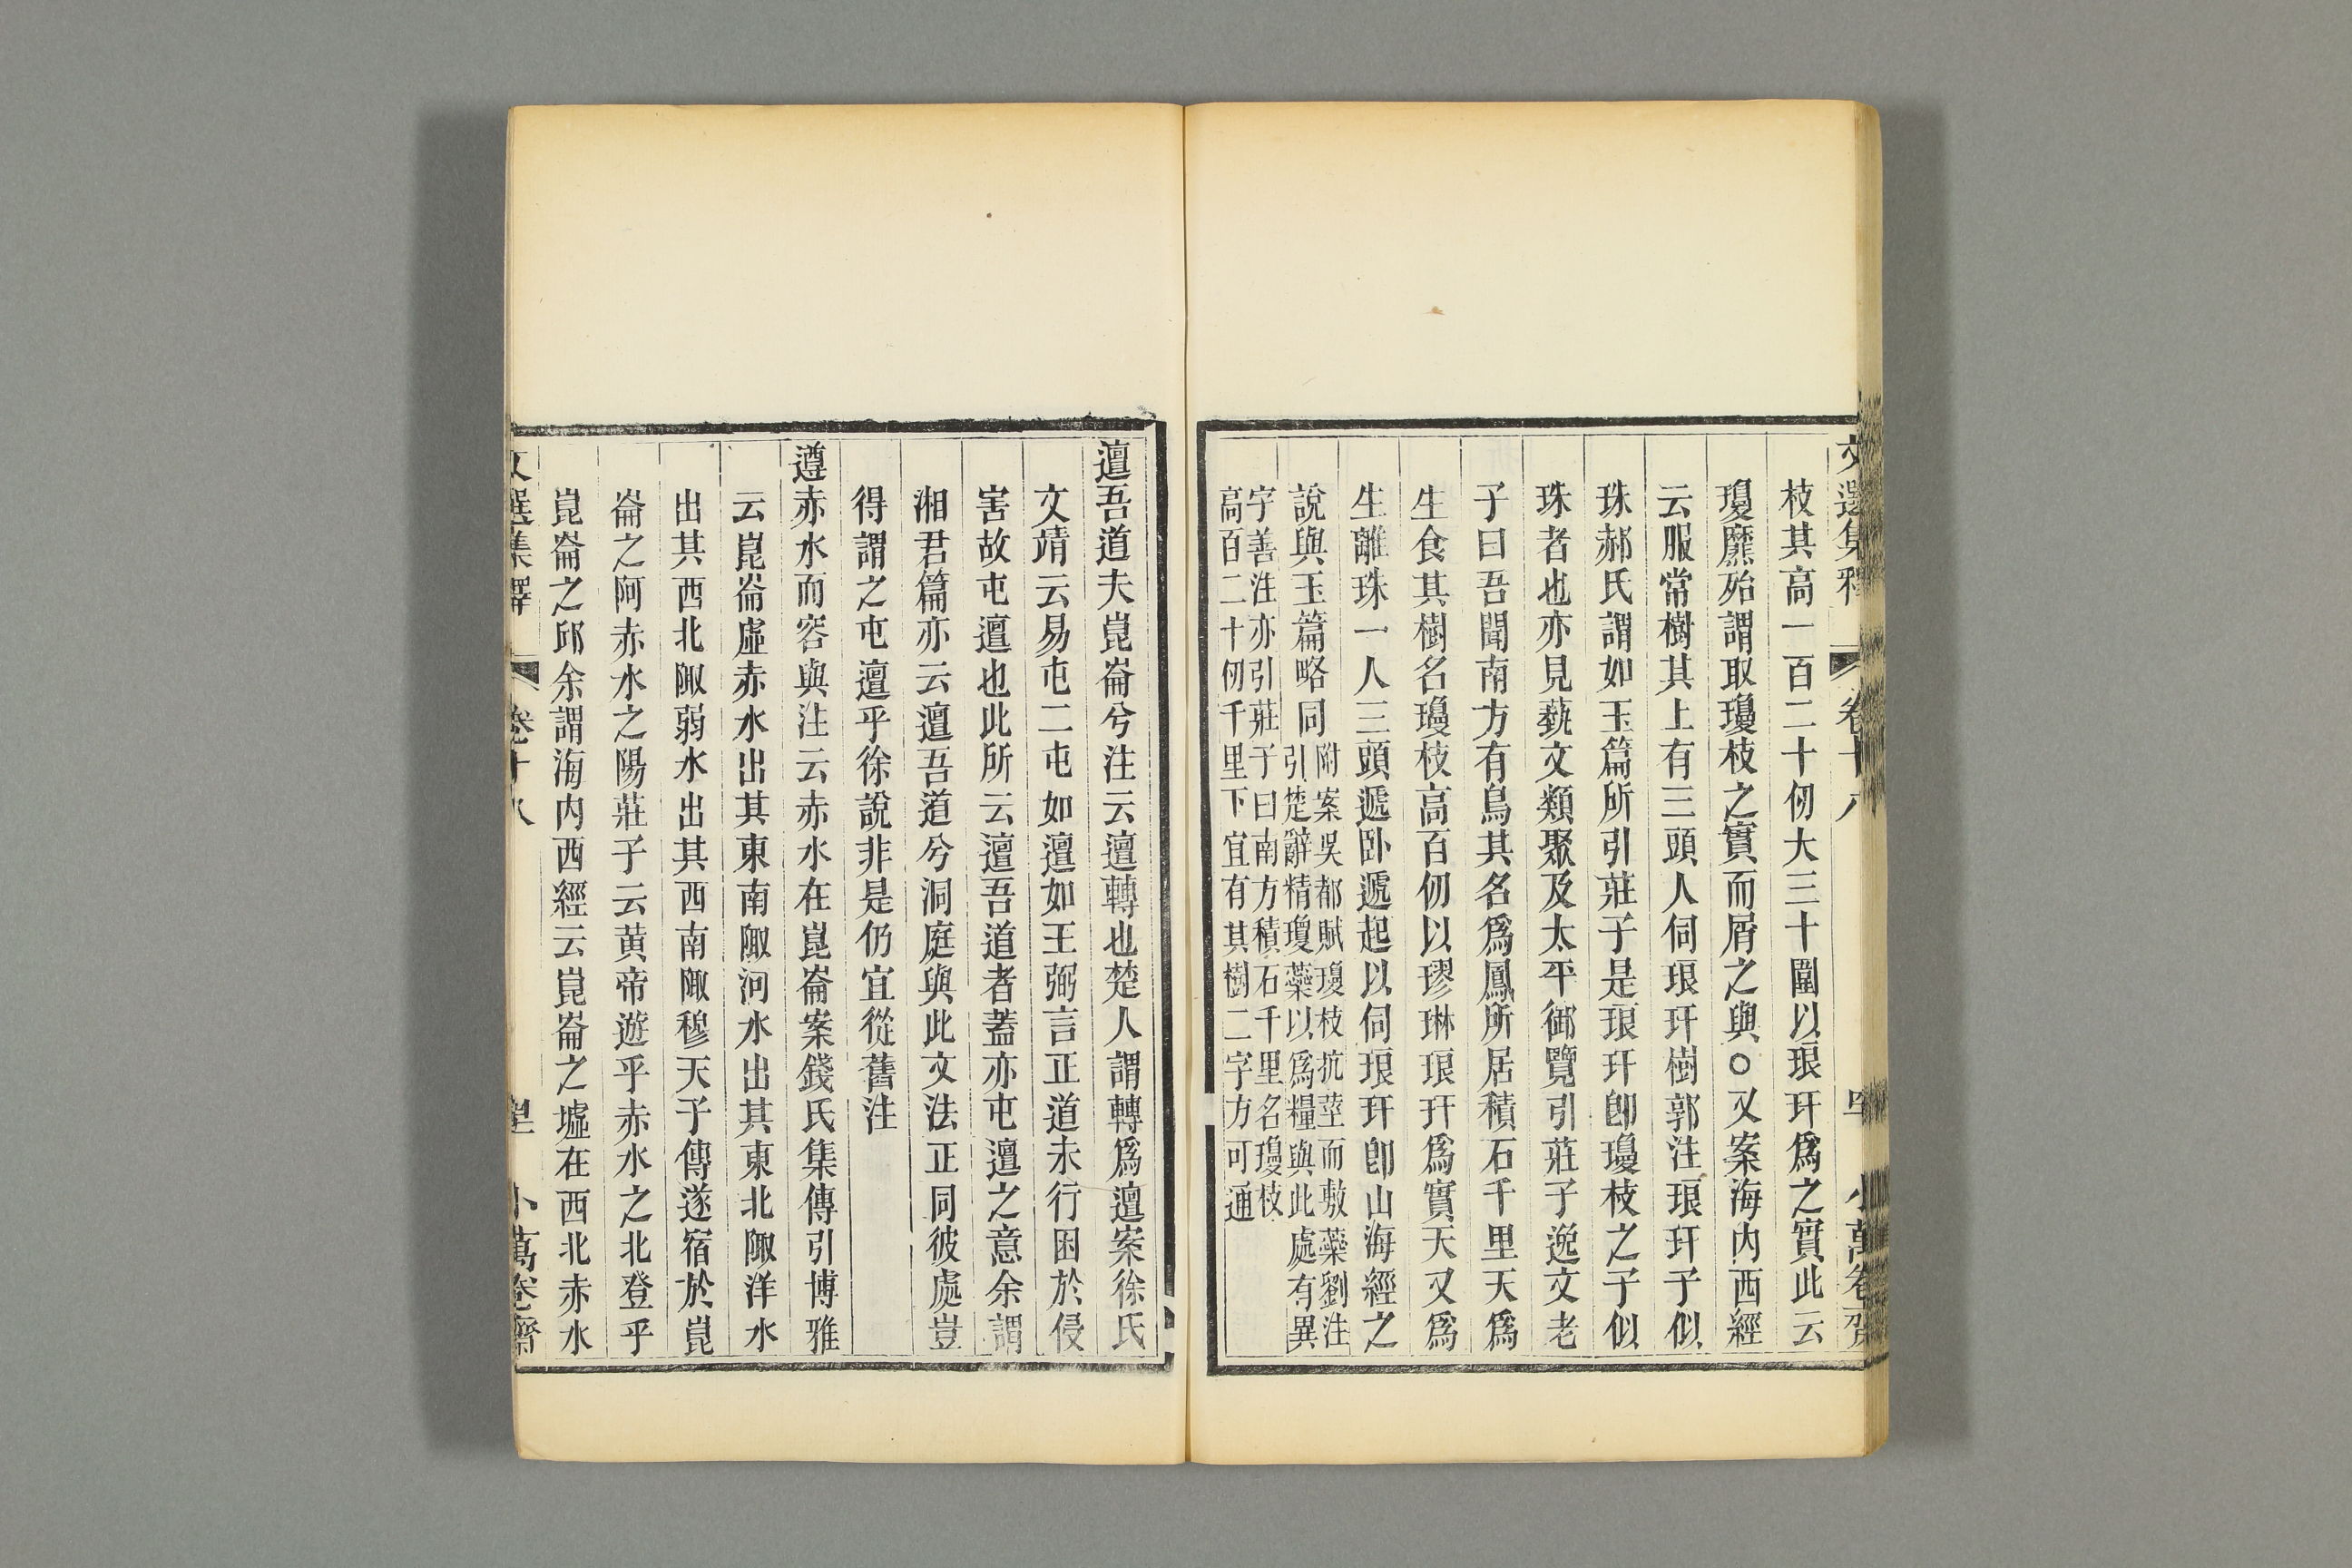 文選集釋 卷十八 小萬卷齋
枝其高一百二十仞大三十圍以琅玕爲之實此云
瓊靡殆謂取瓊枝之實而屑之與○又案海內西經
云服常樹其上有三頭人伺琅玕樹郭注琅玕子似
珠郝氏謂如玉篇所引莊子是琅玕卽瓊枝之子似
珠者也亦見藝文類聚及太平御覽引莊子逸文老
子曰吾聞南方有鳥其名爲鳳所居積石千里天爲
生食其樹名瓊枝高百仞以璆琳琅玕爲實天又爲
生離珠一人三頭遞臥遞起以伺琅玕卽山海經之
說與玉篇略同
附案吳都賦瓊枝抗莖而敷蘂劉注
引楚辭精瓊蘂以爲糧與此處有異
字善注亦引莊子曰南方積石千里名瓊枝
高百二十仞千里下宜有其樹二字方可通
邅吾道夫崑崙兮注云邅轉也楚人謂轉爲邅案徐氏
文靖云易屯二屯如邅如王弼言正道未行困於侵
害故屯邅也此所云邅吾道者蓋亦屯邅之意余謂
湘君篇亦云邅吾道兮洞庭與此文法正同彼處豈
得謂之屯邅乎徐說非是仍宜從舊注
遵赤水而容與注云赤水在崑崙案錢氏集傳引博雅
云崑崙虛赤水出其東南陬河水出其東北陬洋水
出其西北陬弱水出其西南陬穆天子傳遂宿於崑
崙之阿赤水之陽莊子云黃帝遊乎赤水之北登乎
崑崙之邱余謂海內西經云崑崙之墟在西北赤水
文選集釋 卷十八 小萬卷齋